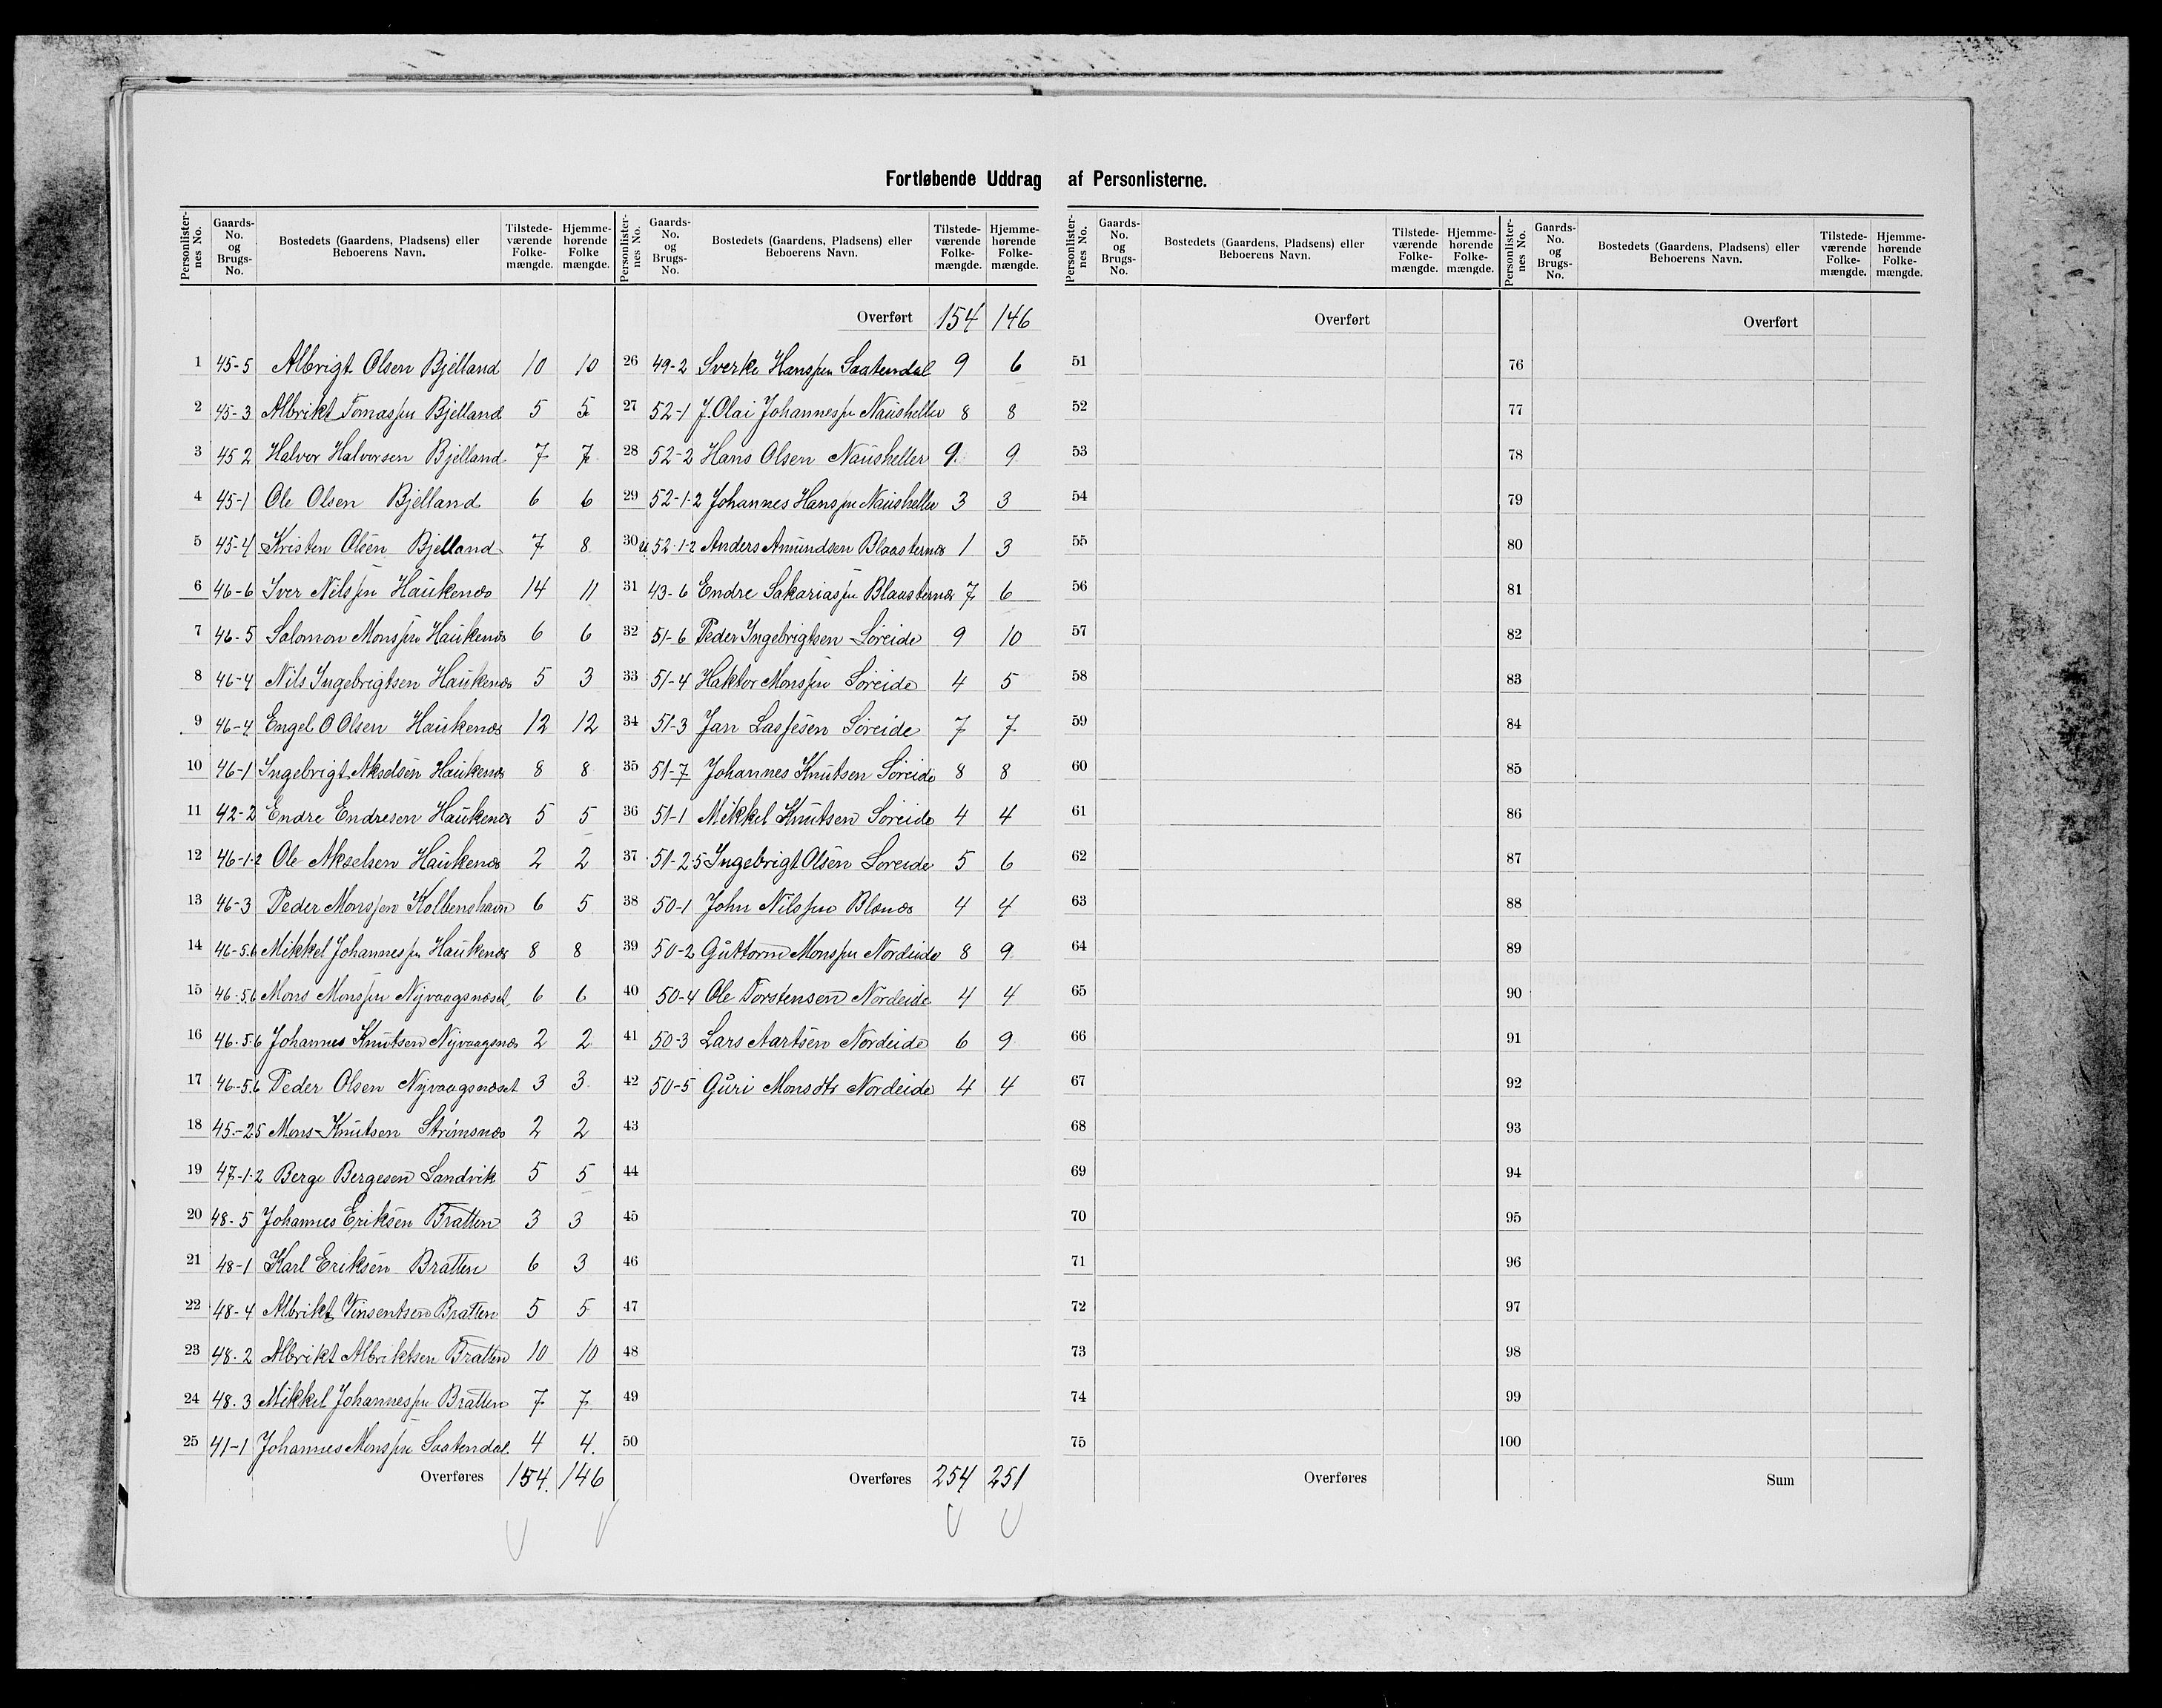 Fortløbende Uddrag af Personlisterne.
Personlister-nes No. Gaards-No. og Brugs-No. Bostedets (Gaardens, Pladsens) eller Beboerens Navn. Tilstede-værende Folke-mængde. Hjemme-hørende Folke mængde.
1 45-5 Albrigt Olsen Bjelland 10 10
2 45-3 Albrikt Tomassen Bjelland 5 5
3 45 2 Halvor Halvorsen Bjelland 7 7
4 45-1 Ole Olsen Bjelland 6 6
5 45-4 Kristen Olsen Bjelland 7 8
6 46-6 Iver Nilssen Haukenæs 14 11
7 46-5 Salomon Monssen Haukenæs 6 6
8 46-4 Nils Ingebrigtsen Haukenæs 5 3
9 46-4 Engel O Olsen Haukenæs 12 12
10 46-1 Ingebrigt Akselsen Haukenæs 8 8
11 42-2 Endre Endresen Haukenæs 5 5
12 46-1-2 Ole Akselsen Haukenæs 2 2
13 46-3 Peder Monssen Kolbenshavn 6 5
14 46-5.6 Mikkel Johannessen Haukenæs 8 8
15 46-5.6 Mons Monssen Nyvaagsnæset 6 6
16 46-5.6 Johannes Knutsen Nyvaagsnæs 2 2
17 46-5.6 Peder Olsen Nyvaagsnæset 3 3
18 45-25 Mons Knutsen Strømsnæs 2 2
19 47-1-2 Berge Bergesen Sandvik 5 5
20 48-5 Johannes Eriksen Bratten 3 3
21 48-1 Karl Eriksen Bratten 6 3
22 48-4 Albrikt Vinsentsen Bratten 5 5
23 48-2 Albrikt Albriktsen Bratten 10 10
24 48-3 Mikkel Johannessen Bratten 7 7
25 41-1 Johannes Monssen Saatendal 4 4.
Overføres 154. 146
Personlister-nes No. Gaards-No. og Brugs-No. Bostedets (Gaardens, Pladsens) eller Beboerens Navn. Tilstede-værende Folke-mængde. Hjemme-hørende Folke-mængde.
Overført 154 146
26 49-2 Sverke Hanssen Saatendal 9 6
27 52-1 J. Olai Johannessen Nausheller 8 8
28 52-2 Hans Olsen Nausheller 9. 9
29 52-1-2 Johannes Hanssen Nausheller 3 3
30 52-1-2 Anders Amundsen Blaasternæs 1 3
31 43-6 Endre Sakariassen Blaasternæs 7 6
32 51-6 Peder Ingebrigtsen Søreide 9 10
33 51-4 Haktor Monssen Søreide 4 5
34 51-3 Jan Lassesen Søreide 7 7
35 51-7 Johannes Knutsen Søreide 8 8
36 51-1 Mikkel Knutsen Søreide 4 4
37 51-25 Ingebrigt Olsen Søreide 5 6
38 50-1 John Nilssen Blænæs 4 4
39 50-2 Guttorm Monssen Nordeide 8 9
40 50-4 Ole Torstensen Nordeide 4 4
41 50-3 Lars Aartsen Nordeide 6 9
42 50-5 Guri Monsdtr Nordeide 4 4
43
44
45
46
47
48
49
50
Overføres 254 251
Personlister-nes No. Gaards-No. og Brugs-No. Bostedets (Gaardens, Pladsens) eller Beboerens Navn. Tilstede-værende Folke-mængde. Hjemme-hørende Folke-mængde.
Overført
51
52
53
54
55
56
57
58
59
60
61
62
63
64
65
66
67
68
69
70
71
72
73
74
75
Overføres
Personlister-nes No. Gaards-No. og Brugs-No. Bostedets (Gaardens, Pladsens) eller Beboerens Navn. Tilstede-værende Folke-mængde. Hjemme-hørende Folke-mængde.
Overført
76
77
78
79
80
81
82
83
84
85
86
87
88
89
90
91
92
93
94
95
96
97
98
99
100
Sum